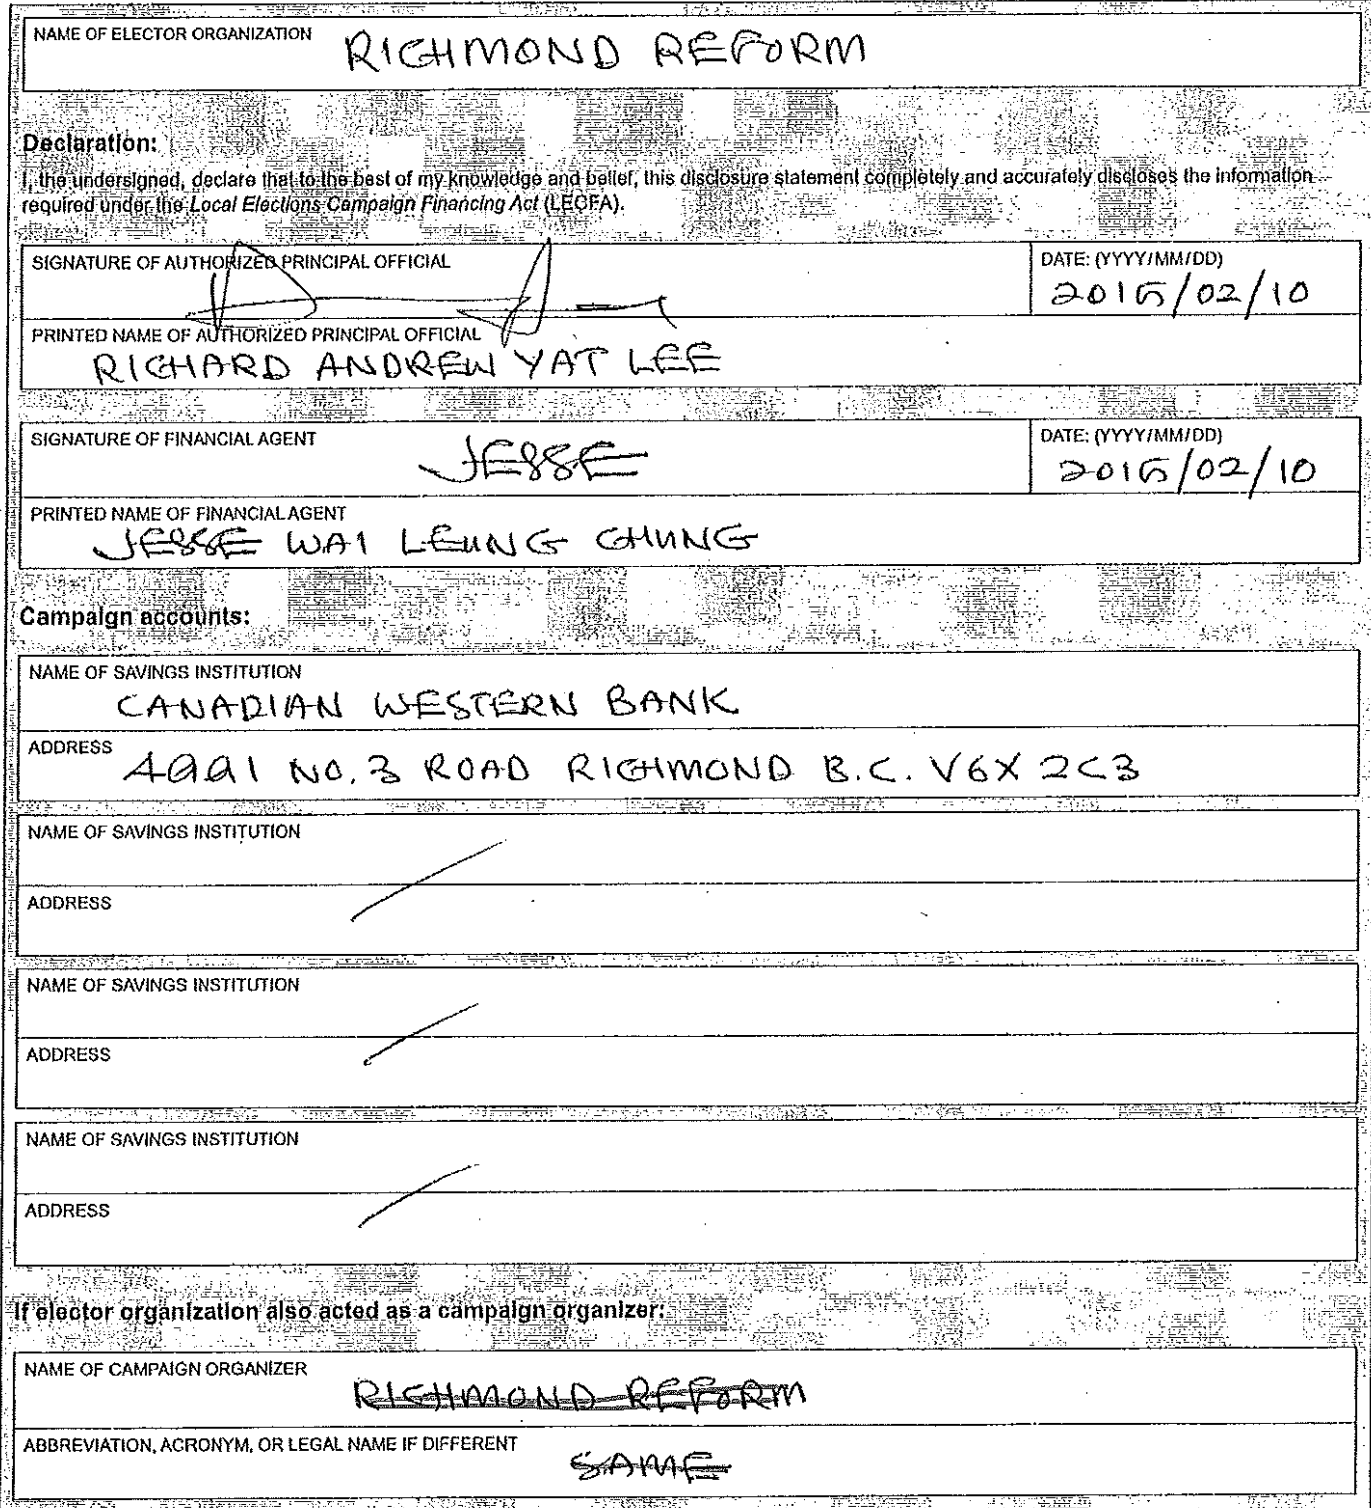 NAME OF ELECTOR ORGANIZATION RICHMOND REFORM
Declaration:
I, the undersigned, declare that to the best of my knowledge and belief, this disclosure statement completely and accurately discloses the information
required under the Local Elections Campaign Financing Act (LECFA).
SIGNATURE OF AUTHORIZED PRINCIPAL OFFICIAL
DATE: (YYYY/MM/DD)
2015/02/10
PRINTED NAME OF AUTHORIZED PRINCIPAL OFFICIAL
RICHARD ANDREW YAT LEE
SIGNATURE OF FINANCIAL AGENT
JESSE
DATE: (YYYY/MM/DD)
2015/02/10
PRINTED NAME OF FINANCIAL AGENT
JESSE WAI LEUNG CHUNG
Campaign accounts:
NAME OF SAVINGS INSTITUTION
CANADIAN WESTERN BANK
ADDRESS 4991 NO. 3 ROAD RICHMOND B.C. V6X 2C3
NAME OF SAVINGS INSTITUTION
ADDRESS
NAME OF SAVINGS INSTITUTION
ADDRESS
NAME OF SAVINGS INSTITUTION
ADDRESS
If elector organization also acted as a campaign organizer:
NAME OF CAMPAIGN ORGANIZER
RICHMOND REFORM
ABBREVIATION, ACRONYM, OR LEGAL NAME IF DIFFERENT
SAME